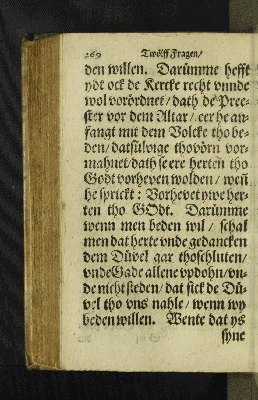 269 Twölff Fragen/
den willen. Darümme hefft
ydt ock de Kercke recht vnnde
wol vorördnet/ dath de Pree-
ster vor dem Altar/ eer he an-
fangt mit dem Volcke tho be-
den/ datsülvige thovörn vor-
mahnet/ dath se ere herten tho
Godt vorheven wolden/ weñ
he sprickt: Vorhevet yiwe her-
ten tho GOdt. Darümme
wenn men beden wil/ schal
men dat herte vnde gedancken
dem Düvel gar thoschluten/
vnde Gade allene updohn/ vn-
de nicht steden/ dat sick de Dü-
vel tho vns nahle/ wenn wy
beden willen. Wente dat ys
syne